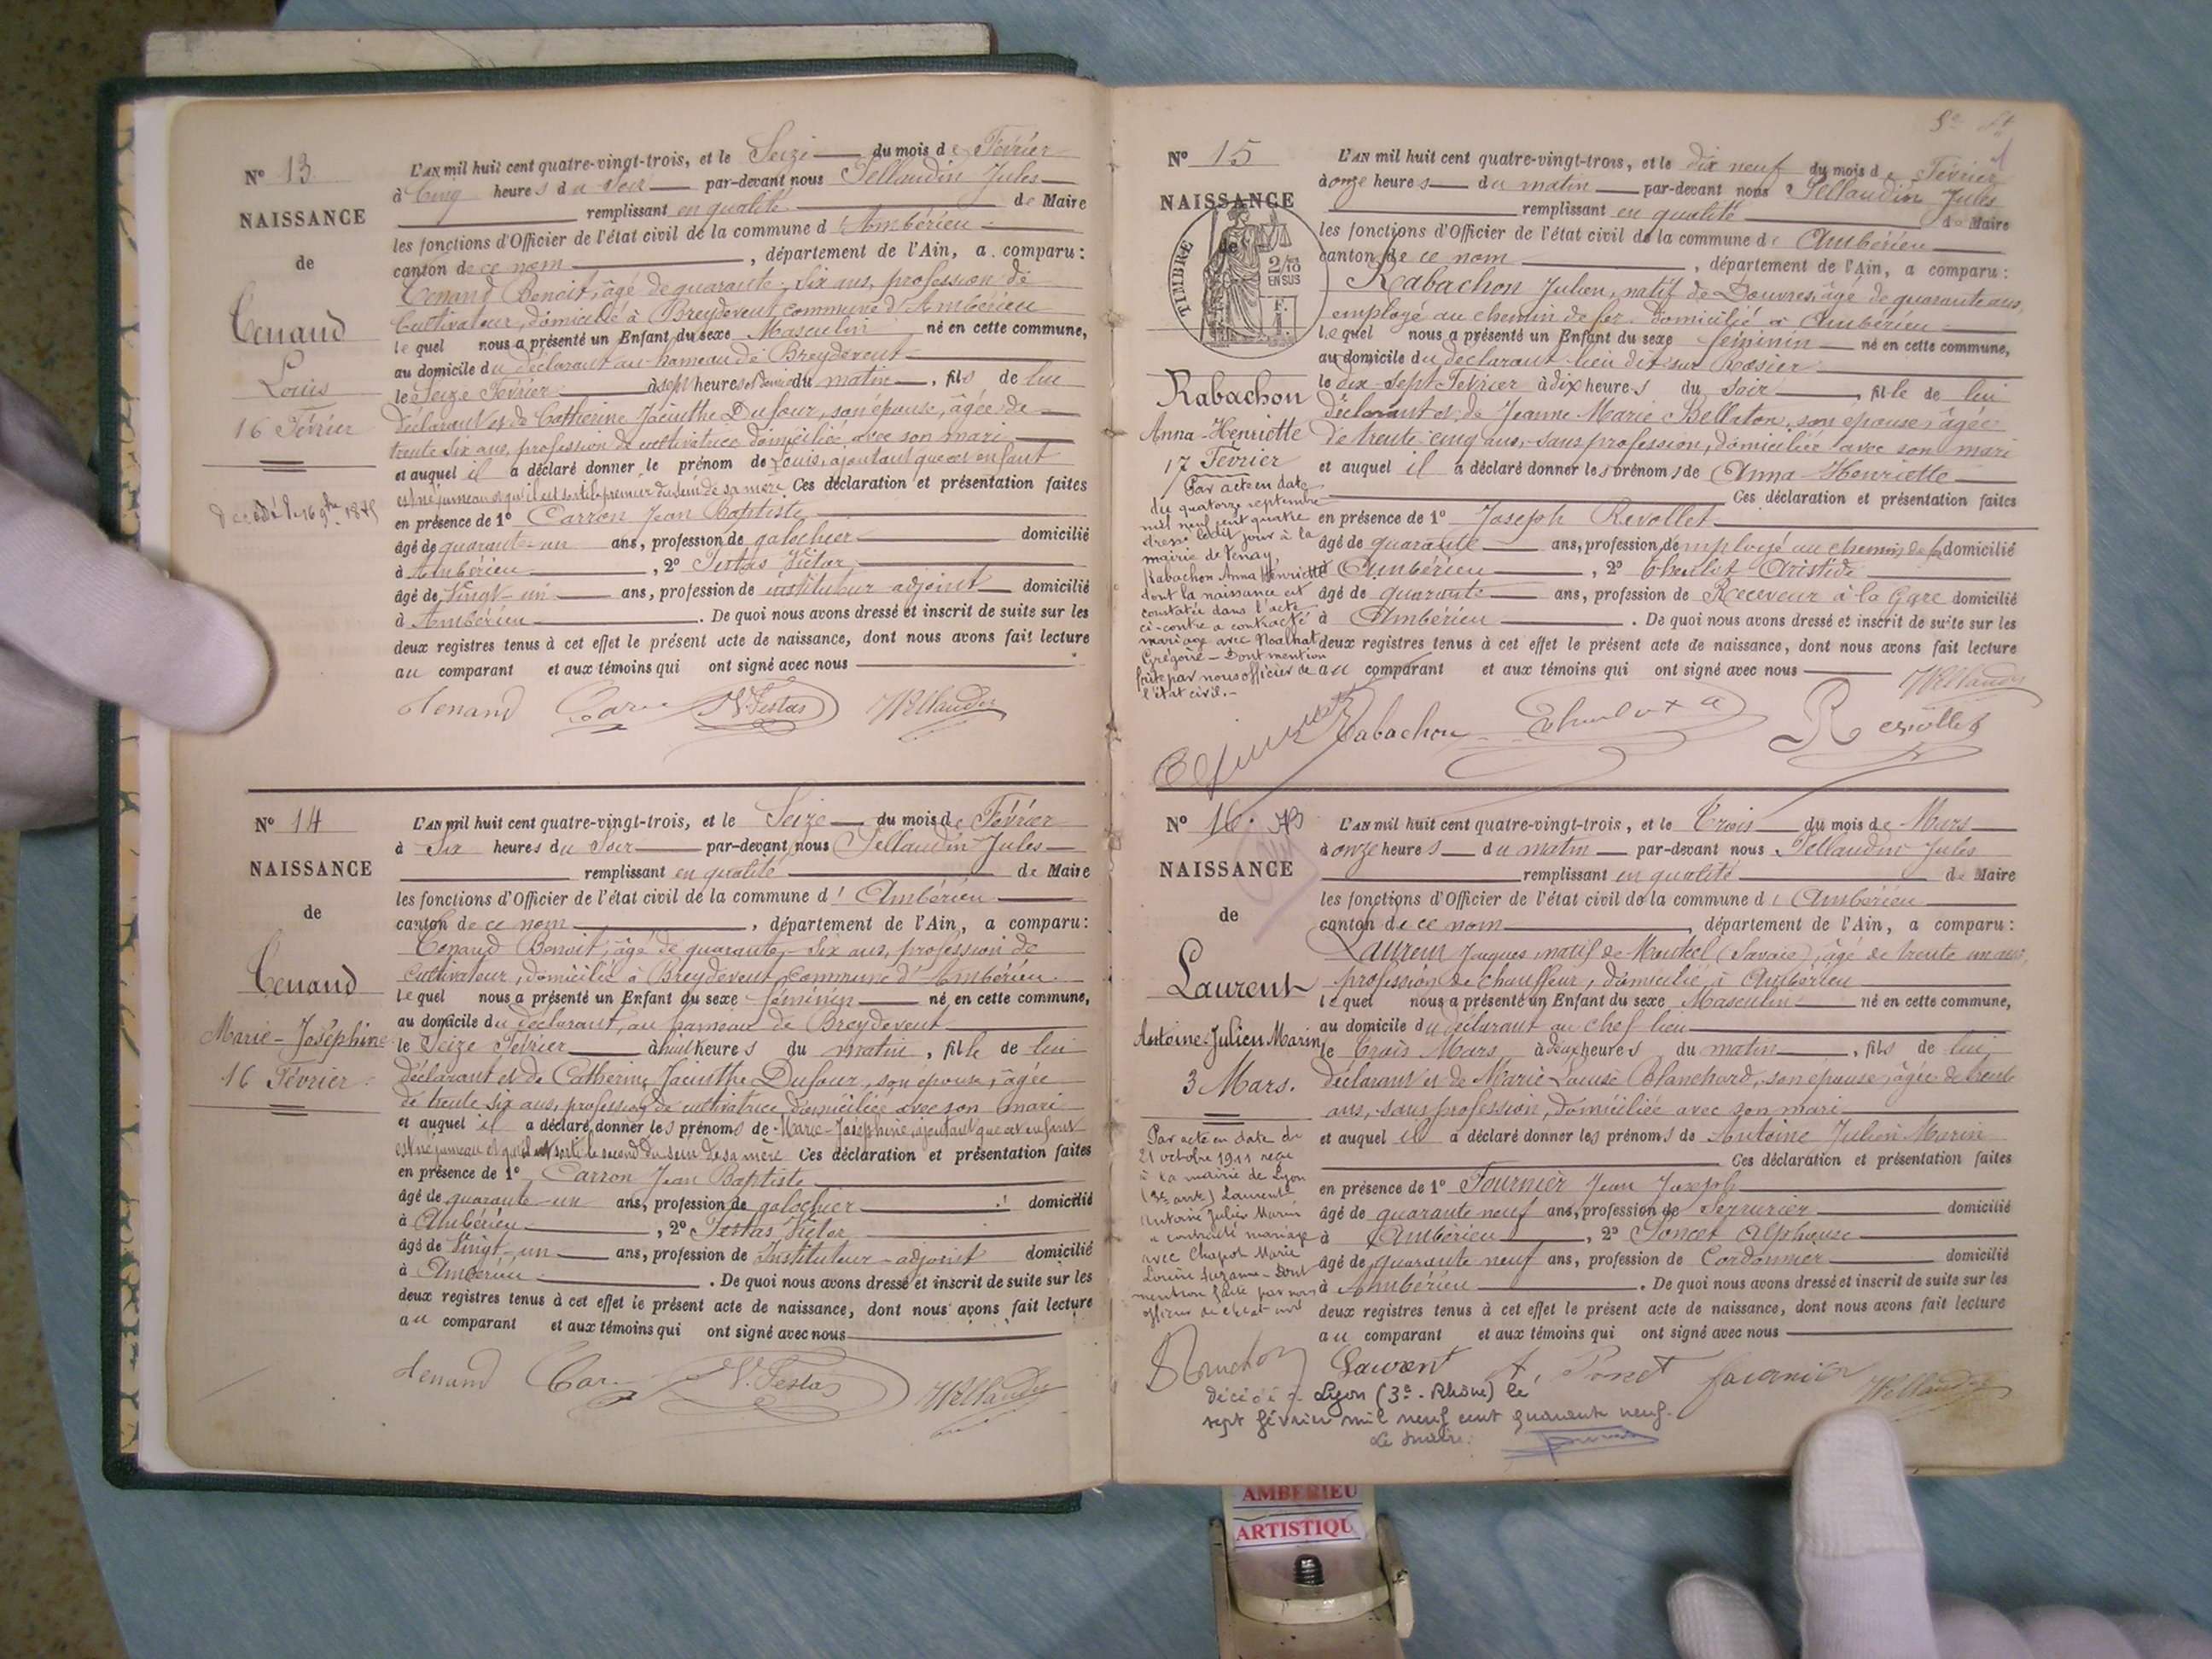 N° 13
NAISSANCE
de
Tenand
Louis
16 Février
L'AN mil huit cent quatre-vingt-trois, et le Seize du mois de Février
à Cinq heures du Soir par-devant nous Tellaudin Jules
remplissant en qualité de Maire
les fonctions d'Officier de l'état civil de la commune d'Ambérieu
canton de ce nom, département de l'Ain, a comparu:
Tenand Benoit, âgé de quarante-six ans, profession de
Cultivateur, domicilié à Breydevent commune d'Ambérieu
lequel nous a présenté un Enfant du sexe Masculin né en cette commune,
au domicile du déclarant au hameau de Breydevent
le Seize Février à sept heures et demie du matin, fils de lui
déclarant et de Catherine Jacinthe Dufour, son épouse, âgée de
trente six ans, profession de cultivatrice domiciliée avec son mari
et auquel il a déclaré donner le prénom de Louis, ajoutant que cet enfant
est né jumeau et qu'il est sorti le premier du sein de sa mère Ces déclaration et présentation faites
en présence de 1° Carron Jean Baptiste
âgé de quarante-un ans, profession de galochier domicilié
à Ambérieu, 2° Testas Victor
âgé de Vingt-un ans, profession de instituteur adjoint domicilié
à Ambérieu. De quoi nous avons dressé et inscrit de suite sur les
deux registres tenus à cet effet le présent acte de naissance, dont nous avons fait lecture
au comparant et aux témoins qui ont signé avec nous
Tenand Car V. Testas
N° 14
NAISSANCE
de
Tenand
Marie-Joséphine
16 Février
L'AN mil huit cent quatre-vingt-trois, et le Seize du mois de Février
à Six heures du Soir par-devant nous Tellaudin Jules
remplissant en qualité de Maire
les fonctions d'Officier de l'état civil de la commune d'Ambérieu
canton de ce nom, département de l'Ain, a comparu:
Tenand Benoit, âgé de quarante-six ans, profession de
Cultivateur, domicilié à Breydevent commune d'Ambérieu
lequel nous a présenté un Enfant du sexe féminin né en cette commune,
au domicile du déclarant, au hameau de Breydevent
le Seize Février à huit heures du matin, fille de lui
déclarant et de Catherine Jacinthe Dufour, son épouse, âgée
de trente six ans, profession de cultivatrice, domiciliée avec son mari
et auquel il a déclaré donner les prénoms de Marie-Joséphine ajoutant que cet enfant
est né jumeau et qu'il est sorti le second du sein de sa mère Ces déclaration et présentation faites
en présence de 1° Carron Jean Baptiste
âgé de quarante-un ans, profession de galochier domicilié
à Ambérieu, 2° Testas Victor
âgé de Vingt-un ans, profession de Instituteur-adjoint domicilié
à Ambérieu. De quoi nous avons dressé et inscrit de suite sur les
deux registres tenus à cet effet le présent acte de naissance, dont nous avons fait lecture
au comparant et aux témoins qui ont signé avec nous
Tenand Car V. Testas
N° 15
NAISSANCE
de
TIMBRE
2/10
EN SUS
F.
1.
Rabachon
Anna-Henriette
17 Février
Par acte en date
du quatorze septembre
mil neuf cent quatre
dressé ledit jour à la
mairie de Tenay,
Rabachon Anna Henriette
dont la naissance est
constatée dans l'acte
ci-contre a contracté
mariage avec Noalhat
Grégoire - Dont mention
faite par nous officier de
l'état civil.-
L'AN mil huit cent quatre-vingt-trois, et le dix neuf du mois de Février
à onze heures du matin par-devant nous Tellaudin Jules
remplissant en qualité de Maire
les fonctions d'Officier de l'état civil de la commune d'Ambérieu
canton de ce nom, département de l'Ain, a comparu:
Rabachon Julien, natif de Douvres, âgé de quarante ans,
employé au chemin de fer, domicilié à Ambérieu
lequel nous a présenté un Enfant du sexe féminin né en cette commune,
au domicile du déclarant lieu dit sur Rosier
le dix-sept Février à dix heures du soir, fille de lui
déclarant et de Jeanne Marie Bellaton, son épouse, âgée
de trente-cinq ans, sans profession, domiciliée avec son mari
et auquel il a déclaré donner les prénoms de Anna Henriette
Ces déclaration et présentation faites
en présence de 1° Joseph Revollet
âgé de quarante ans, profession d'employé au chemin de fer domicilié
à Ambérieu, 2° Aristide
âgé de quarante ans, profession de Receveur à la Gare domicilié
à Ambérieu. De quoi nous avons dressé et inscrit de suite sur les
deux registres tenus à cet effet le présent acte de naissance, dont nous avons fait lecture
au comparant et aux témoins qui ont signé avec nous
Rabachon Revollet
N° 16.
NAISSANCE
de
Laurent
Antoine-Julien Marin
3 Mars.
Par acte en date du
21 octobre 1911 reçu
à la mairie de Lyon
(3e arrt) Laurent
Antoine Julien Marin
a contracté mariage
avec Chapot Marie
Louise Suzanne - dont
mention faite par nous
officier de l'état civil
L'AN mil huit cent quatre-vingt-trois, et le Trois du mois de Mars
à onze heures du matin par-devant nous Tellaudin Jules
remplissant en qualité de Maire
les fonctions d'Officier de l'état civil de la commune d'Ambérieu
canton de ce nom, département de l'Ain, a comparu:
Laurent Jacques, natif de (Savoie), âgé de trente un ans,
profession de chauffeur, domicilié à Ambérieu
lequel nous a présenté un Enfant du sexe Masculin né en cette commune,
au domicile du déclarant au chef lieu
le trois Mars à deux heures du matin, fils de lui
déclarant et de Marie Louise Blanchard, son épouse, âgée de trente
ans, sans profession, domiciliée avec son mari
et auquel il a déclaré donner les prénoms de Antoine Julien Marin
Ces déclaration et présentation faites
en présence de 1° Fournier Jean Joseph
âgé de quarante neuf ans, profession de Serrurier domicilié
à Ambérieu, 2° Poncet Alphonse
âgé de quarante neuf ans, profession de Cordonnier domicilié
à Ambérieu. De quoi nous avons dressé et inscrit de suite sur les
deux registres tenus à cet effet le présent acte de naissance, dont nous avons fait lecture
au comparant et aux témoins qui ont signé avec nous
Laurent A. Poncet fournier
décédé à Lyon (3e - Rhône) le
sept février mil neuf cent quarante neuf.
Le Maire:
AMBERIEU
ARTISTIQU